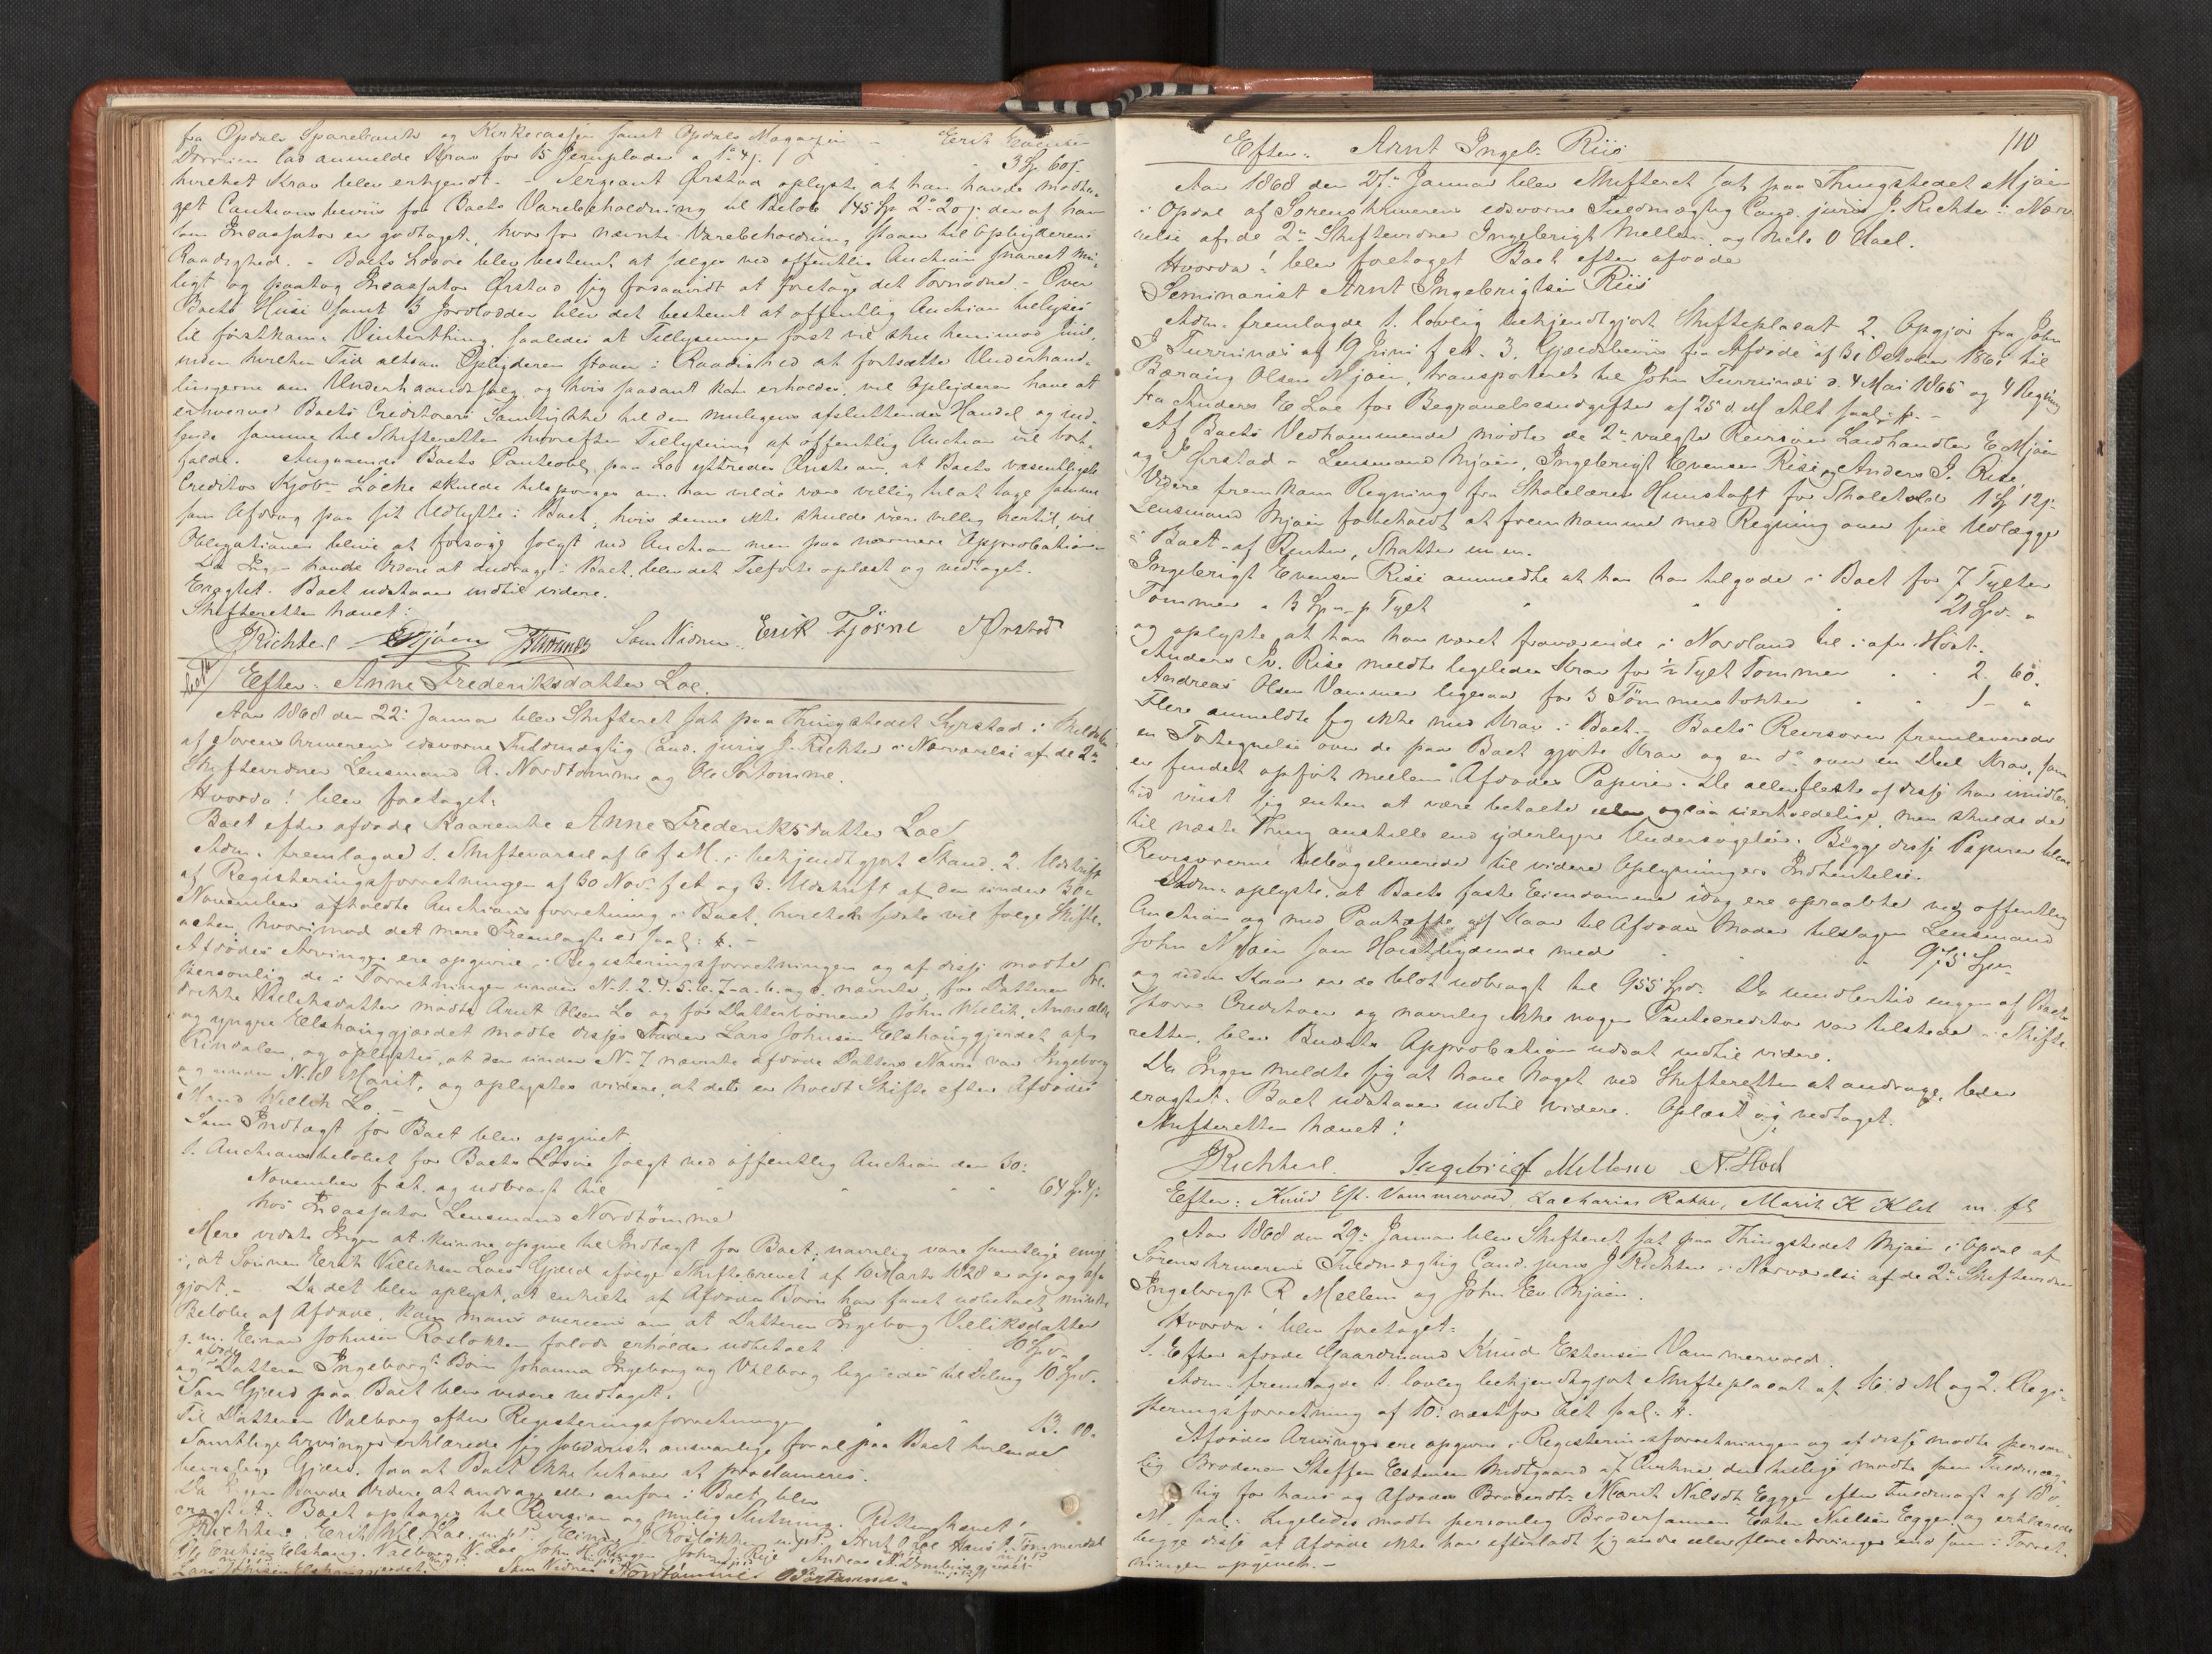 fra Opdals Sparebank og Kirkecassen samt Opdals Magazin - Erik Evensen
lod anmelde Krav for 15 Jernplader a 1 # 4 s. 3 Sp. 60 s.
hvilket Krav blev erkjendt. - Sergeant Ørstad oplyste, at han havde modta-
get Cautionsbeviis for Boets Varebeholdning til Beløb 145 Sp 2 # 20 s. der af ham
som Incassator er godtaget, hvorfor nævnte Varebeholdning staaer til Opbyderens
Raadighed. - Boets Løsøre blev bestemt at sælges ved offentlig Auction snarest mu-
ligt og paatog Incassator Ørstad sig forsaavidt at foretage det Fornødne. - Over
Boets Huse samt 3 Jordlodder blev det bestemt at offentlig Auction belyses
til førstkom. Vinterthing, saaledes at Tillysningen først vil skee henimod
inden hvilken Tid altsaa Opbyderen staaer i Raadighed at fortsætte Underhand-
lingerne om Underhaandssalg, og hvis saadant kan erholdes, vil Opbyderen have at
erhverve Boets Creditorers Samtykke til den muligens afsluttende Handel og ind-
sende samme til Skifteretten hvorefter Tillysning af offentlig Auction vil bort-
falde. Angaaende Boets Panteobl. paa Lo yttredes Ønske om, at Boets væsentligste
Creditor Kjøbm. Locke skulde tilspørges om han vilde være villig til at tage samme
som Afdrag paa sit Udlæg i Boet, hvis denne ikke skulde være villig hertil, vil
Obligationen blive at forsøge solgt ved Auction men paa nærmere Approbation.
Da Ingen havde Videre at andrage i Boet, blev det Tilførte oplæst og vedtaget.
Eragtet. Boet udstaaer indtil videre.
Skifteretten hævet:
JRichter EMjøen Som Vidner. Erik Fjøsne JØrstad
Efter Anne Frederiksdatter Loe.
Aar 1868 den 22: Januar blev Skifteret sat paa Thingstedet Syrstad i Meldalen
af Sorenskriverens edsvorne Fuldmægtig Cand. juris J. Richter i Nærværelse af de 2de
Skiftevidner Lensmand A. Nordtømme og Ole Sørtømme.
Hvorda! blev foretaget.
Boet efter afdøde Kaarenke Anne Frederiksdatter Loe
Adm. fremlagde 1. Skiftevarsel af 6 f. M. i bekjendtgjort Stand. 2. Udskrift
af Registreringsforretningen af 30 Nov. f. A. og 3. Udskrift af den under 30
November afholdte Auctionsforretning i Boet, hvilket sidste vil følge Skifte-
acten, hvorimod det mere Fremlagte er saal:
Afdødes Arvinger ere opgivne i Registreringsforretningen og af disse mødte
personlig de i Forretningen under N. 1. 2. 4. 5. 6. 7 a. b. og c. nævnte, for Datteren Fre-
drikke Villiksdatter mødte Arnt Olsen Lo og for Datterbørnene John Willik, Anne ældre
og yngre Elshauggjærdet mødte disses Fader Lars Johnsen Elshauggjerdet af
Rindalen, og oplystes, at den under N. 7 nævnte afdøde Datters Navn var Ingeborg
og under N. 8 Marit, og oplystes videre, at dette er holdt Skifte efter Afdødes
Mand Willik Lo.
Som Indtægt for Boet blev opgivet.
1. Auctionsbeløbet for Boets Løsøre solgt ved offentlig Auction den 30:
November f. A. og udbragt til 64 Sp. 4 s.
hos Incassator Lensmand Nordtømme
Mere vidste Ingen at kunne opgive til Indtægt for Boet; navnlig vare samtlige enige
i, at Sønnen Erik Villiksen Loes Gjæld ifølge Skiftebrevet af 10 Marts 1828 er op og af-
gjort. - Da det blev oplyst, at enkelte af Afdødes Børn har faaet udbetalt mindre
Beløbe af Afdøde, kom man overeens om at Datteren Ingeborg Villiksdatter
g. m. Einar Johnsen Rosløkken forlods erholder udbetalt 10 Spd.
og afdøde Datteren Ingeborgs Børn Johanna Ingeborg og Valborg ligeledes til Deling 10 Spd.
Som Gjæld paa Boet blev videre vedtaget.
Til Datteren Valborg efter Registreringsforretningen 13. 00.
Samtlige Arvinger erklærede sig solidarisk ansvarlige for al paa Boet heftende
beviislige Gjæld, saa at Boet ikke behøver at proclameres.
Da Ingen havde Videre at andrage eller anføre i Boet, blev
eragtet. Boet optages til Revision og muelig Slutning. Retten hævet!
JRichter. Erik Wil. Loe. m. p. P. Einar J Rosløkken m. p. P. Arnt O Loe Hans O. Tømmerdal
Ole Eriksen Elshaug. Valborg N. Loe John H. John Rise Andreas
Lars Johnsen Elshauggjærdet. Som Vidner Nordtømme OSørtømme.
110
Efter: Arnt Ingeb. Riis
Aar 1868 den 27: Januar blev Skifteret sat paa Thingstedet Mjøen
i Opdal af Sorenskriverens edsvorne Fuldmægtig Cand. juris J. Richter i Nærvæ-
relse af de 2de Skiftevidner Ingebrigt Mellem og Nels O Hoel.
Hvorda! blev foretaget Boet efter afdøde
Seminarist Arnt Ingebrigtsen Riis
Adm. fremlagde 1. lovlig bekjendtgjort Skifteplacat 2. Opgjør fra John
J Furrunæs af 19 Juni f. A. 3. Gjældsbeviis fra Afdøde af 31 October 1865 til
Olsen Mjøen, transporteret til John Furrunæs d. 4 Mai 1866 og 4 Regning
fra Anders E Loe for Begravelsesudgifter af 25 d. M. Alt saal:
Af Boets Vedkommende mødte de 2de valgte Revisorer Landhandler E Mjøen
og J Ørstad - Lensmand Mjøen, Ingebrigt Evensen Rise og Anders J. Rise.
Videre fremkom Regning fra Skolelærer Hunstoft for Skolehold 1 Sp 12 s.
Lensmand Mjøen forbeholdt at fremkomme med Regning over sine Udlægge
i Boet af Renter, Skatter m. m.
Ingebrigt Evensen Rise anmeldte at han har tilgode i Boet for 7 Tylter
Tømmer a 3 Spd. p. Tylt 21 Spd. "
og oplyste, at han har været fraværende i Nordland til i afv. Høst.
Anders Jr. Rise meldte ligeledes Krav for ½ Tylt Tømmer 2. 60.
Andreas Olsen Vammer ligesaa for 3 Tømmerstokker 1 - "
Flere anmeldte sig ikke med Krav i Boet. Boets Revisorer fremleverede
en Fortegnelse over de paa Boet gjorte Krav og en do over en Deel Krav, som
er fundet opført mellem Afdødes Papirer. De allerfleste af disse har imidler-
tid viist sig enten at være betalte eller ogsaa uerholdelige, men skulde de
til næste Thing anstille end yderligere Undersøgelser. Begge disse Papirer bleve
Revisorerne tilbageleverede til videre Oplysningers Indhentelse.
Adm. oplyste, at Boets faste Eiendomme idag ere opraabte ved offentlig
Auction og med Paahefte af Kaar til Afdødes Moder tilslagen Lensmand
John N Mjøen som Høistbydende med 975 Spd.
og uden Kaar er de blot udbragt til 955 Spd. Da imidlertid ingen af Boets
større Creditorer og navnlig ikke nogen Pantecreditor var tilstede i Skifte-
retten, blev Budets Approbation udsat indtil videre.
Da Ingen meldte sig at have Noget ved Skifteretten at andrage, blev
eragtet. Boet udstaaer indtil videre. Oplæst og vedtaget.
Skifteretten hævet!
JRichter. Ingebrigt Mellem N. Hoel
Efter: Knud Est. Vammervold, Zacharias Rathe, Marit K Klet m. fl
Aar 1868 den 29: Januar blev Skifteret sat paa Thingstedet Mjøen i Opdal af
Sorenskriverens Fuldmægtig Cand. juris J Richter i Nærværelse af de 2de Skiftevidner
Ingebrigt R Mellem og John Ev. Mjøen.
Hvorda! blev foretaget.
1. Efter afdøde Gaardmand Knud Estensen Vammervold.
Adm. fremlagde 1. lovlig bekjendtgjort Skifteplacat af 16 d. M. og 2. Regi-
streringsforretning af 10: næstfor. saal:
Afdødes Arvinger ere opgivne i Registreringsforretningen og af disse mødte person-
lig Broderen Steffen Estensen Midtgaard af den hellige mødte som Fuldmæg-
tig for hans og Afdødes Broderdtr. Marit Nilsdt. Eggen efter Fuldmagt af 18
M. saal. Ligeledes mødte personlig Brodersønnen Esten Nielsen Eggen og erklærede
begge disse at Afdøde ikke har efterladt sig andre eller flere Arvinger end som i Forret-
ningen opgivet. -